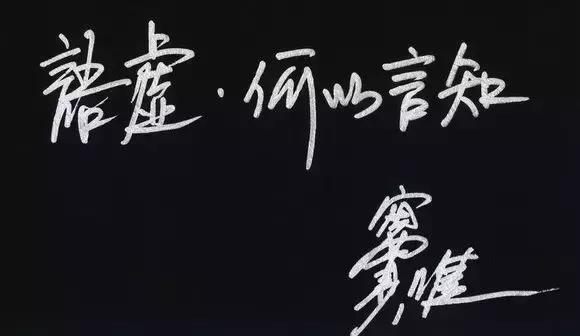 語虛·何以言知
竇唯